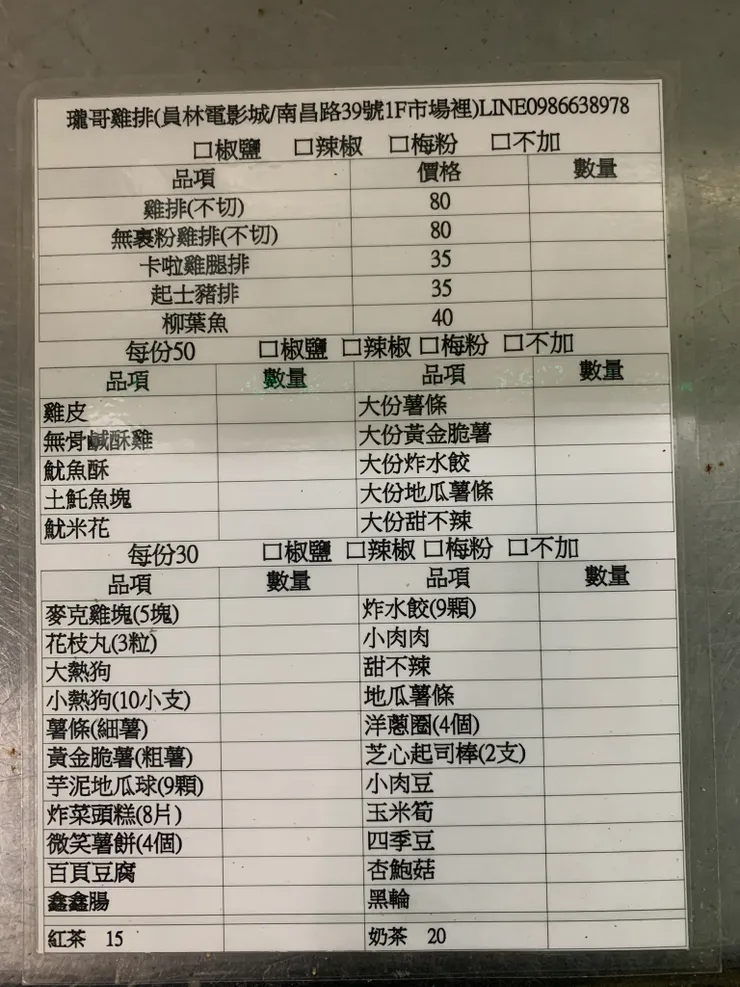 瓏哥雞排(員林電影城/南昌路39號1F市場裡)LINE0986638978
口椒鹽 口辣椒 口梅粉 口不加
品項 價格 數量
雞排(不切) 80
無裹粉雞排(不切) 80
卡啦雞腿排 35
起士豬排 35
柳葉魚 40
每份50 口椒鹽 口辣椒 口梅粉 口不加
品項 數量 品項 數量
雞皮 大份薯條
無骨鹹酥雞 大份黃金脆薯
魷魚酥 大份炸水餃
土魠魚塊 大份地瓜薯條
魷米花 大份甜不辣
每份30 口椒鹽 口辣椒 口梅粉 口不加
品項 數量 品項 數量
麥克雞塊(5塊) 炸水餃(9顆)
花枝丸(3粒) 小肉肉
大熱狗 甜不辣
小熱狗(10小支) 地瓜薯條
薯條(細薯) 洋蔥圈(4個)
黃金脆薯(粗薯) 芝心起司棒(2支)
芋泥地瓜球(9顆) 小肉豆
炸菜頭糕(8片) 玉米筍
微笑薯餅(4個) 四季豆
百頁豆腐 杏鮑菇
鑫鑫腸 黑輪
紅茶 15 奶茶 20